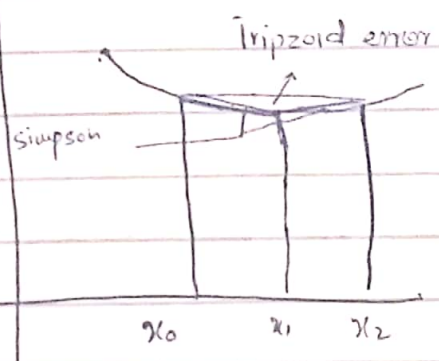 Tripzoid error
simpson
x₀ x₁ x₂